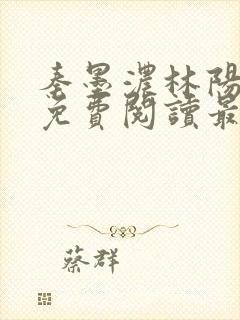 秦墨濃林陽
免費閱讀最
蔡群